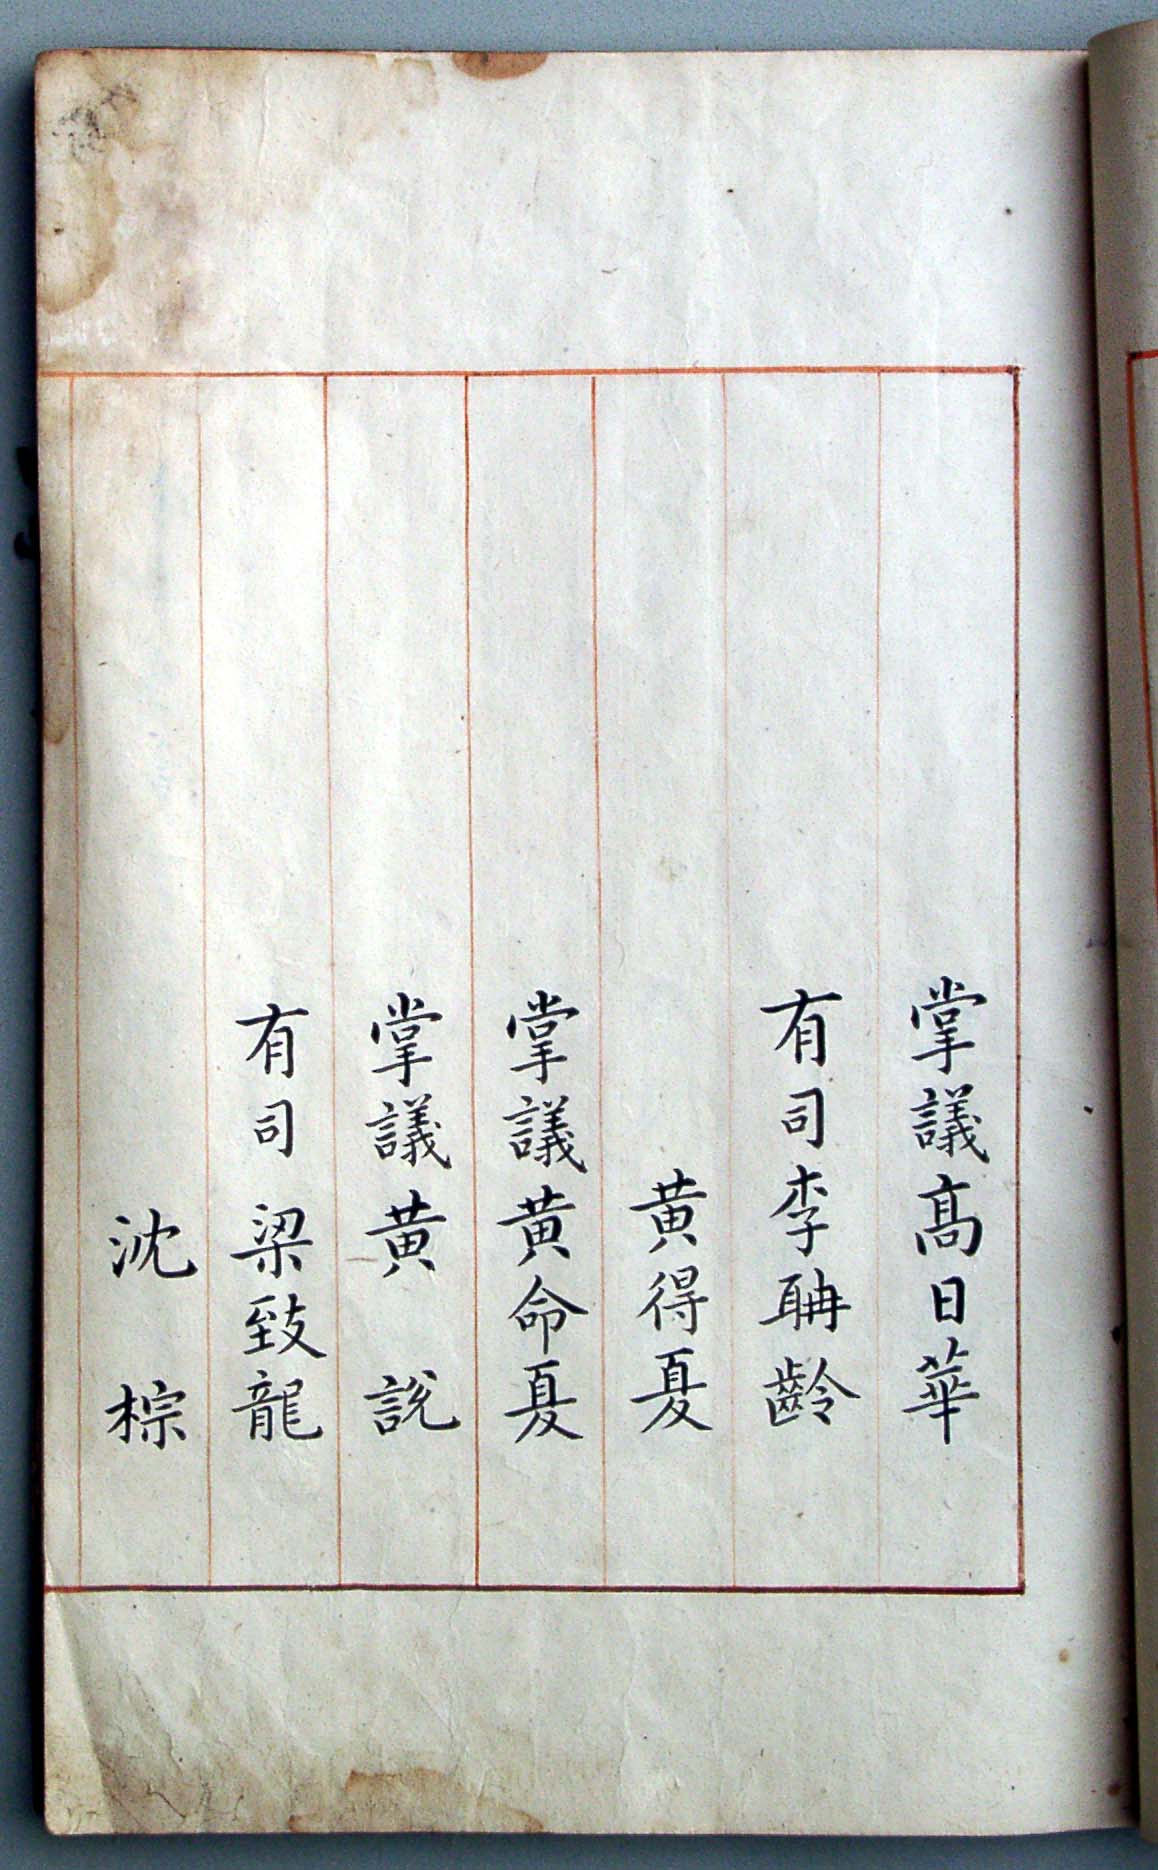 掌議髙日華
有司李聃齡
黄得夏
掌議黄命夏
掌議黄說
有司梁致龍
沈棕